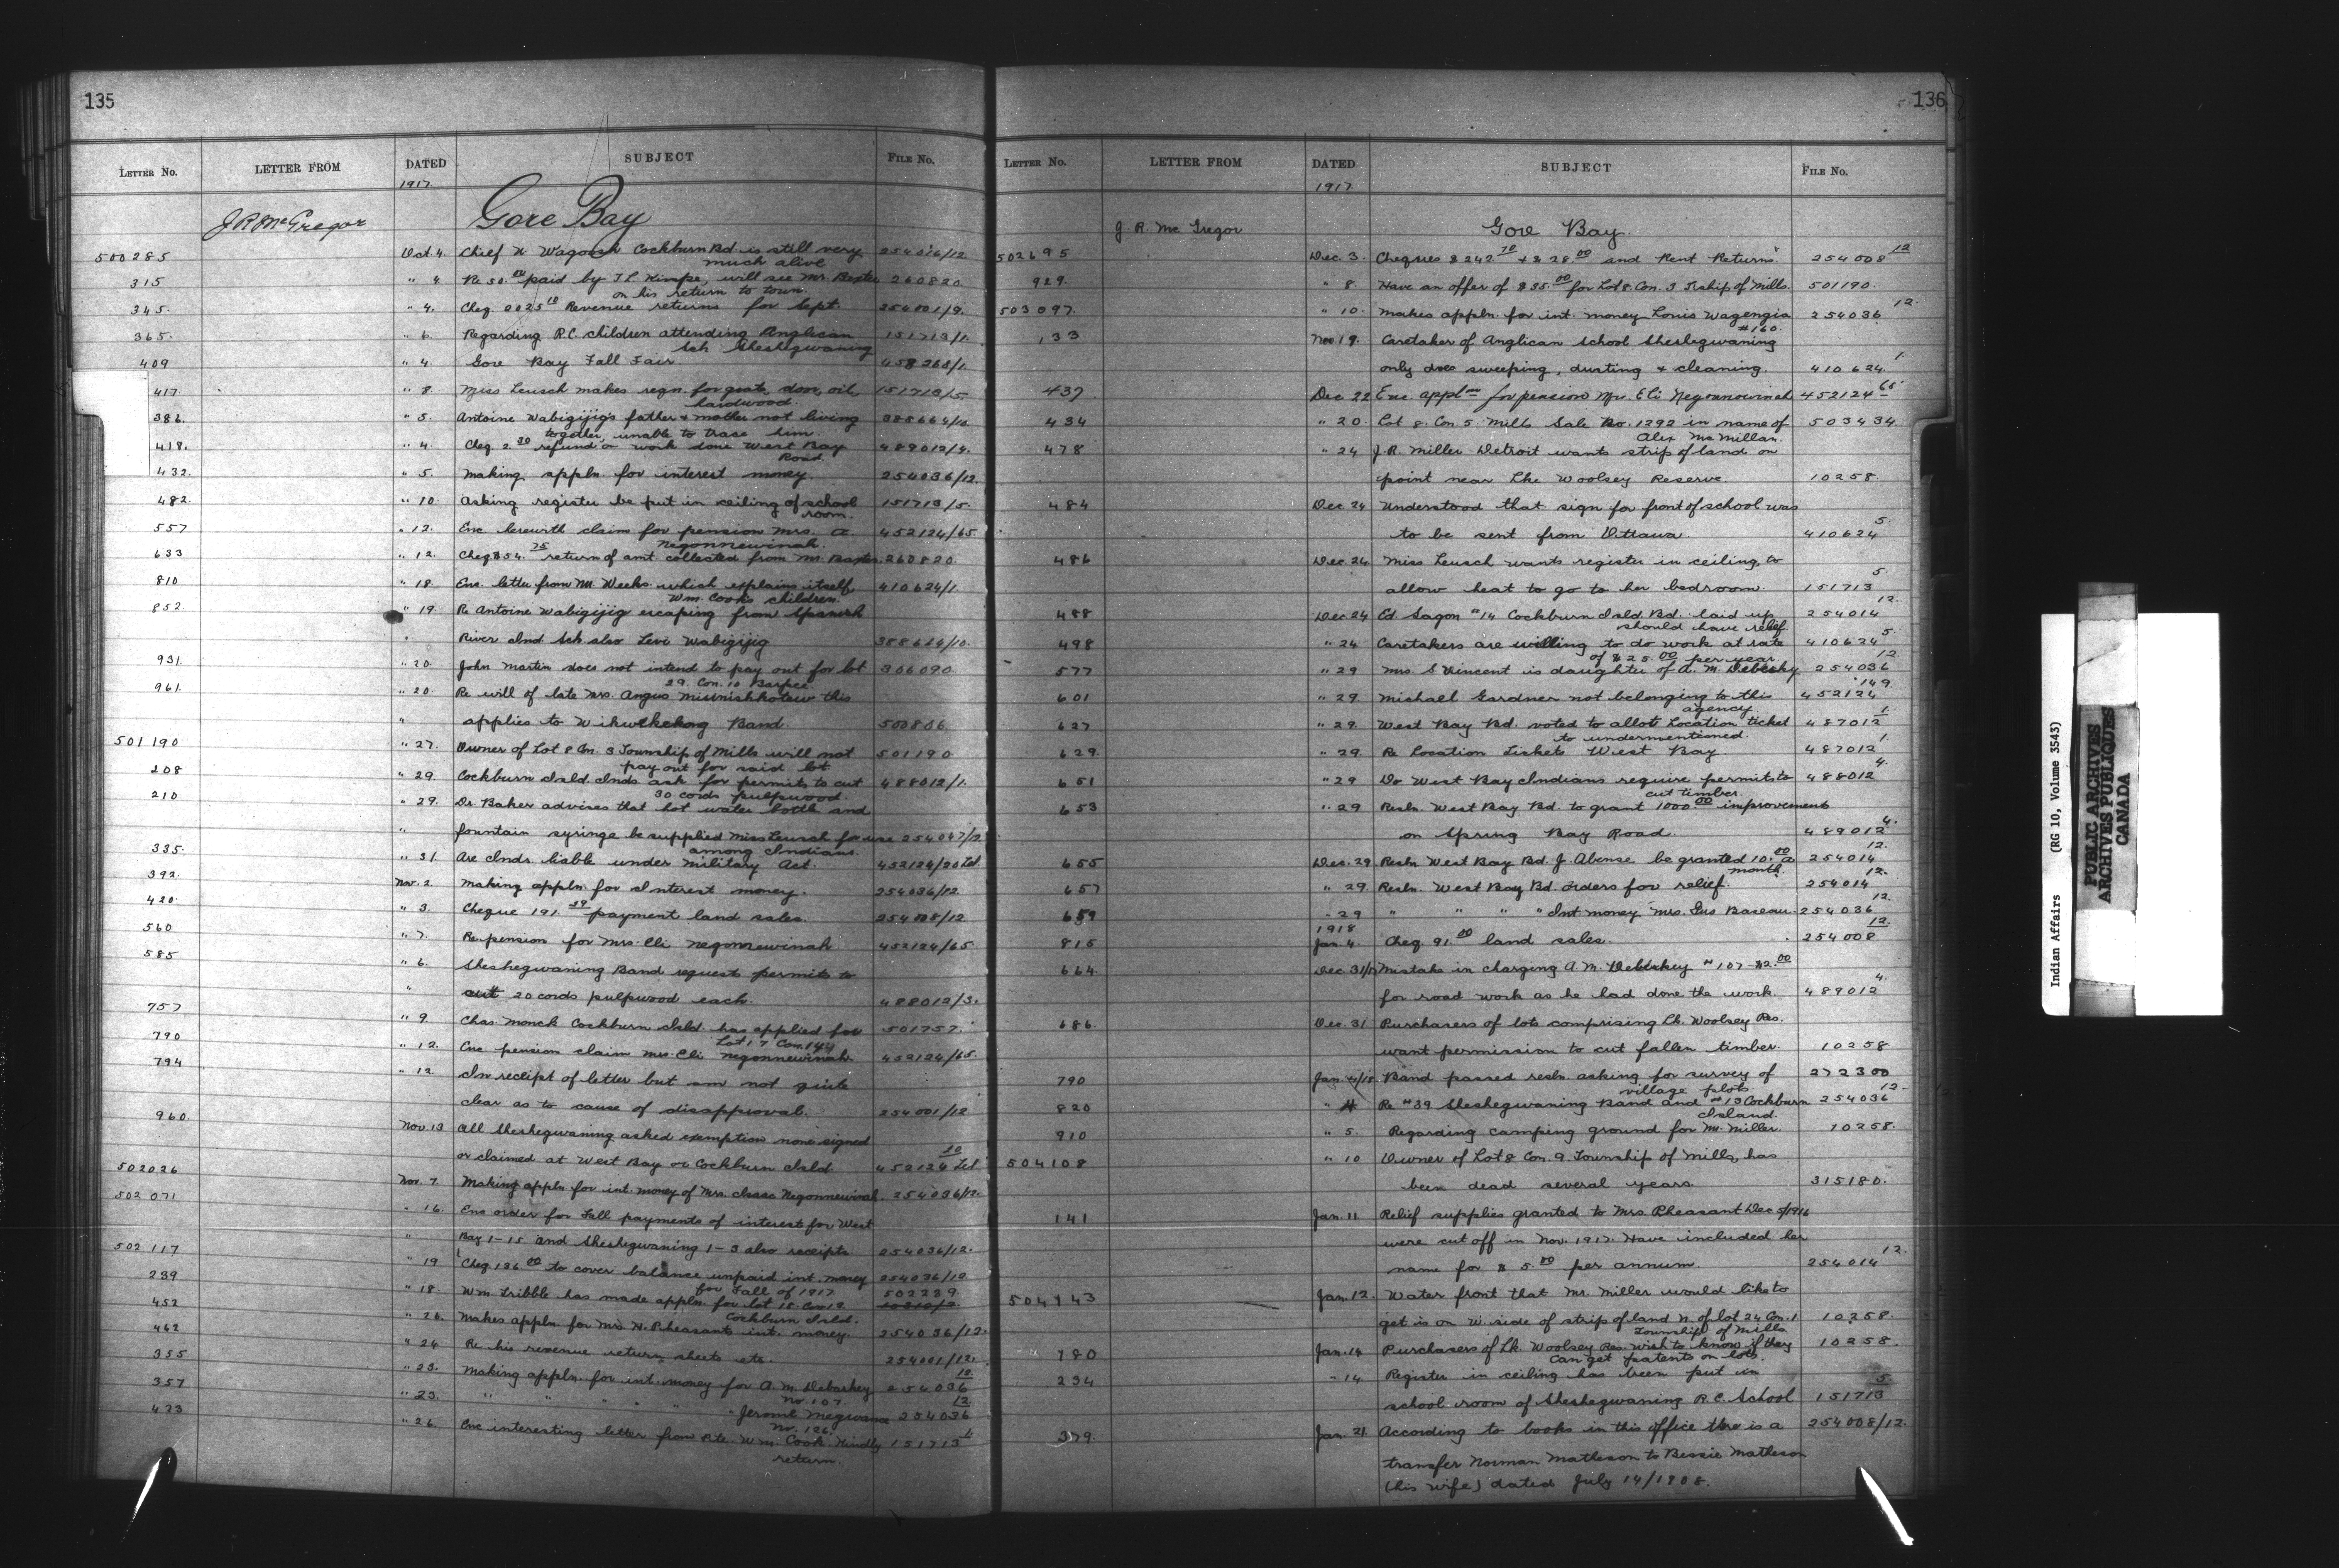 135
LETTER No. LETTER FROM DATED SUBJECT FILE No.
1917
J R McGregor Gore Bay
500285 Oct 4. Chief N Wagosh Cockburn Bd. is still very 254016/12
much alive
315 " 4 Re 50.00 paid by T L Kimpe, will see Mr. Baxter 260820
on his return to town.
345 " 4. Cheq. Revenue returns for Sept. 254001/9.
365. " 6. Regarding R.C. children attending Anglican 151713/1.
Sch Sheshegwaning
409 " 4 Gore Bay Fall Fair 458268/1.
417. " 8. Miss Leusch makes reqn. for grate, door, oil, 151713/5
hardwood.
386. " 5. Antoine Wabigijig's father & mother not living 388664/10.
together, unable to trace him.
418. " 4. Cheq. 2.30 refund on work done West Bay 489012/4.
Road.
432. " 5. Making appln. for interest money. 254036/12.
482. " 10. Asking register be put in ceiling of school 151713/5.
room.
557 " 12. Enc herewith claim for pension Mrs. A 452124/65
Negonnewinah.
633 " 12. Cheq $54.75 return of amt. collected from Mr. Baxter. 260820.
810 " 18 Enc. letter from Mr. Weeks which explains itself 410624/1.
Wm. Cooks children.
852. " 19. Re Antoine Wabigijig escaping from Spanish
River Ind Sch also Levi Wabigijig 388664/10.
931. " 20. John Martin does not intend to pay out for lot 306090
29. Con. 10 Barpee.
961. " 20. Re will of late Mrs. Angus this
" applies to Wikwekekong Band. 500886
501190 " 27. Owner of Lot 8 Con. 3 Township of Mills will not 501190
pay out for said lot
208 " 29. Cockburn Isld. Inds ask for permits to cut 488012/1.
30 cords pulpwood.
210 " 29. Dr. Baker advises that hot water bottle and
" fountain syringe be supplied Miss Leusch for use 254047/12
among Indians.
335. " 31 Are Inds. liable under Military Act. 452124/20 Tel.
392. Nov. 2. Making appln. for Interest money. 254036/12
420. " 3. Cheque 191.39 payment land sales. 254008/12
560 " 7. Re. pension for Mrs. Eli Negonnewinah 452124/65.
585 " 6. Sheshegwaning Band request permits to
" cut 20 cords pulpwood each. 488012/3.
757 " 9. Chas. Monck Cockburn Isld. has applied for 501757.
Lot 17 Con.
790 " 12. Enc pension claim Mrs. Eli Negonnewinah 452124/65.
794 " 12. In receipt of letter but am not quite
clear as to cause of disapproval. 254001/12
960 Nov 13 All Sheshegwaning asked exemption none signed
or claimed at West Bay or Cockburn Isld 452124 20 Tel
502026 Nov. 7. Making appln for int. money of Mrs. Negonnewinah 254036/12.
502071 " 16. Enc order for Fall payments of interest for West
" Bay 1-15 and Sheshegwaning 1-3 also receipts. 254036/12.
502117 " 19 Cheq. 136.00 to cover balance unpaid int. money 254036/10
for Fall of 1917
239 " 18. Wm Tribble has made appln. for lot 15 Con 12 502239
Cockburn Isld.
452 " 26. Makes appln for Mrs N. Pheasants int. money. 254036/12.
462 " 24 Re his revenue return sheets etc. 254001/12.
355 " 23. Making appln. for int. money for A. M. Debaskey 254036 12.
No. 107.
357 " 23. " " " " " Jerome Megwance 254036 12.
No. 126.
423 " 26. Enc interesting letter from Pte. Wm. Cook Kindly 151713
return.
136
LETTER No. LETTER FROM DATED SUBJECT FILE No.
1917
J. R. Mc Gregor Gore Bay.
502695 Dec. 3. Cheques $242.70 + $28.00 and Rent Returns. 254008 12
929. " 8. Have an offer of $35.00 for Lot 8. Con. 3 T'ship of Mills. 501190.
503097. " 10. Makes appln. for int. money Louis Wagengia 254036 12.
#160.
133 Nov 19. Caretaker of Anglican School Sheshegwaning
only does sweeping, dusting & cleaning. 410624. 1.
437 Dec 22 Enc. appln for pension Mrs. Eli Negonnewinah 452124 65
434 " 20. Lot 8. Con. 5. Mills Sale No. 1292 in name of 503434.
Alex McMillan.
478 " 24 J.R. Miller Detroit wants strip of land on
point near Lke Woolsey Reserve. 10258.
484 Dec. 24 Understood that sign for front of school was
to be sent from Ottawa. 410624 5.
486 Dec. 24. Miss Leusch wants register in ceiling to
allow heat to go to her bedroom 151713 5.
488 Dec 24 Ed. Sagon #14 Cockburn Isld Bd. laid up 254014 12.
should have relief.
498 " 24 Caretakers are willing to do work at rate 410624 5.
of $25.00 per year.
577 " 29 Mrs. S Vincent is daughter of A. M. Debasky 254036 12.
601 " 29. Michael Gardner not belonging to this 452124 149.
agency.
627 " 29. West Bay Bd. voted to allot Location ticket 487012 1.
to undermentioned.
629. " 29. Re Location Tickets West Bay. 487012 1.
651 " 29 Do West Bay Indians require permits to 488012 4.
cut timber.
653 " 29 Resln. West Bay Bd. to grant 1000.00 improvement
on Spring Bay Road. 489012 4.
655 Dec. 29. Resln. West Bay Bd. J. Abense be granted 10.00 a 254014 12.
month.
657 " 29. Resln. West Bay Bd. orders for relief. 254014 12.
659 " 29 " " " " Int money, Mrs. Gus Bareau. 254036 12.
1918
815 Jan. 4. Cheq. 91.00 land sales. 254008 12.
664. Dec 31/17 Mistake in charging A. M. Debaskey #107 $2.00
for road work as he had done the work. 489012 4.
686. Dec. 31 Purchasers of lots comprising Lk. Woolsey Res.
want permission to cut fallen timber. 10258
790 Jan. 4/18 Band passed resln. asking for survey of 272300
village plots.
820 " 4 Re #39 Sheshegwaning Band and #13 Cockburn 254036 12.
Island.
910 " 5. Regarding camping ground for Mr. Miller. 10258.
504108 " 10 Owner of Lot 8 Con. 9. Township of Mills, has
been dead several years. 315180.
141 Jan. 11 Relief supplies granted to Mrs. Pheasant Dec 5/1916
were cut off in Nov. 1917. Have included her
name for $5.00 per annum. 254014 12.
504143 Jan. 12. Water front that Mr. Miller would like to
get is on W. side of strip of land N. of lot 24 Con. 1 10258.
Township of Mills.
180 Jan. 14 Purchasers of Lk. Woolsey Res. wish to know if they 10258.
can get patents on lots.
234 " 14. Register in ceiling has been put in
school room of Sheshegwaning R.C. School 151713 5.
379. Jan. 21 According to books in this office there is a 254008/12.
transfer Norman Matheson to Bessie Matheson
(his wife) dated July 14/1908.
Indian Affairs (RG 10, Volume 3543)
PUBLIC ARCHIVES
ARCHIVES PUBLIQUES
CANADA